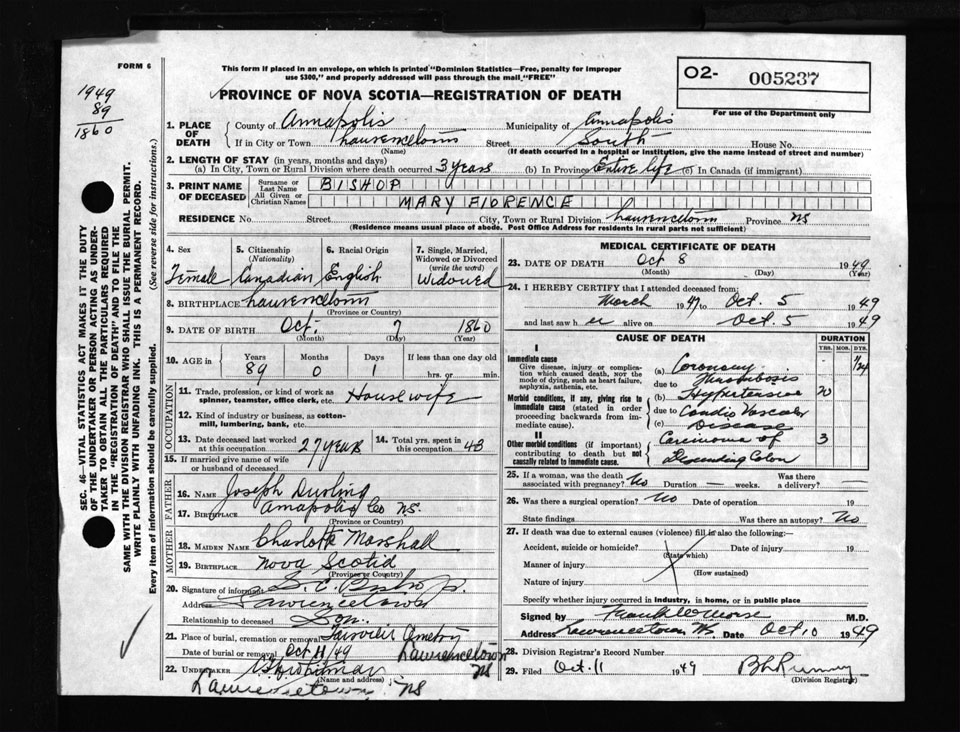 FORM 6
1949
89
1860
This form if placed in an envelope, on which is printed "Dominion Statistics—Free, penalty for improper
use $300," and properly addressed will pass through the mail "FREE"
PROVINCE OF NOVA SCOTIA—REGISTRATION OF DEATH
02- 005237
For use of the Department only
SEC. 46—VITAL STATISTICS ACT MAKES IT THE DUTY
OF THE UNDERTAKER OR PERSON ACTING AS UNDER-
TAKER TO OBTAIN ALL THE PARTICULARS REQUIRED
IN THE "REGISTRATION OF DEATH" AND TO FILE THE
SAME WITH THE DIVISION REGISTRAR WHO SHALL ISSUE THE BURIAL PERMIT.
WRITE PLAINLY WITH UNFADING INK. THIS IS A PERMANENT RECORD.
Every item of information should be carefully supplied. (See reverse side for instructions.)
1. PLACE OF DEATH County of Annapolis Municipality of Annapolis
If in City or Town Lawrencetown Street South House No.
(Name) (If death occurred in a hospital or institution, give the name instead of street and number)
2. LENGTH OF STAY (in years, months and days)
(a) In City, Town or Rural Division where death occurred 3 years (b) In Province Entire life (c) In Canada (if immigrant)
3. PRINT NAME OF DECEASED Surname or Last Name BISHOP
All Given or Christian Names MARY FLORENCE
RESIDENCE No. Street City, Town or Rural Division Lawrencetown Province NS
(Residence means usual place of abode. Post Office Address for residents in rural parts not sufficient)
4. Sex 5. Citizenship (Nationality) 6. Racial Origin 7. Single, Married, Widowed or Divorced (write the word)
Female Canadian English Widowed
8. BIRTHPLACE Lawrencetown
(Province or Country)
9. DATE OF BIRTH Oct. 7 1860
(Month) (Day) (Year)
10. AGE in Years Months Days If less than one day old
89 0 1 hrs. or min.
OCCUPATION
11. Trade, profession, or kind of work as spinner, teamster, office clerk, etc. Housewife
12. Kind of industry or business, as cotton-mill, lumbering, bank, etc.
13. Date deceased last worked at this occupation 27 years 14. Total yrs. spent in this occupation 43
15. If married give name of wife or husband of deceased
FATHER
16. NAME Joseph Durling
17. BIRTHPLACE Annapolis Co NS.
(Province or Country)
MOTHER
18. MAIDEN NAME Charlotte Marshall
19. BIRTHPLACE Nova Scotia
(Province or Country)
20. Signature of informant
Address Lawrencetown
Relationship to deceased Son.
21. Place of burial, cremation or removal Cemetry
Date of burial or removal Oct 11/49 Lawrencetown
22. UNDERTAKER NS
(Name and address)
Lawrencetown NS
MEDICAL CERTIFICATE OF DEATH
23. DATE OF DEATH Oct 8 1949
(Month) (Day) (Year)
24. I HEREBY CERTIFY that I attended deceased from:
March 1947 to Oct. 5 1949
and last saw h er alive on Oct. 5 1949
CAUSE OF DEATH DURATION
YRS. MOS. DYS.
I
Immediate cause
Give disease, injury or complication which caused death, NOT the mode of dying, such as heart failure, asphyxia, asthenia, etc.
(a) Coronary
due to Thrombosis
Morbid conditions, if any, giving rise to immediate cause (stated in order proceeding backwards from immediate cause).
(b) Hypertensive 20
due to Cardio Vascular
(c) Disease
II
Other morbid conditions (if important) contributing to death but not causally related to immediate cause.
Carcinoma of 3
Descending Colon
25. If a woman, was the death associated with pregnancy? No Duration — weeks. Was there a delivery? —
26. Was there a surgical operation? No Date of operation 19
State findings Was there an autopsy? No
27. If death was due to external causes (violence) fill in also the following:—
Accident, suicide or homicide? (State which) Date of injury 19
Manner of injury (How sustained)
Nature of injury
Specify whether injury occurred in industry, in home, or in public place
Signed by Frank W Morse M.D.
Address Lawrencetown NS. Date Oct 10 1949
28. Division Registrar's Record Number
29. Filed Oct. 11 1949
(Division Registrar)